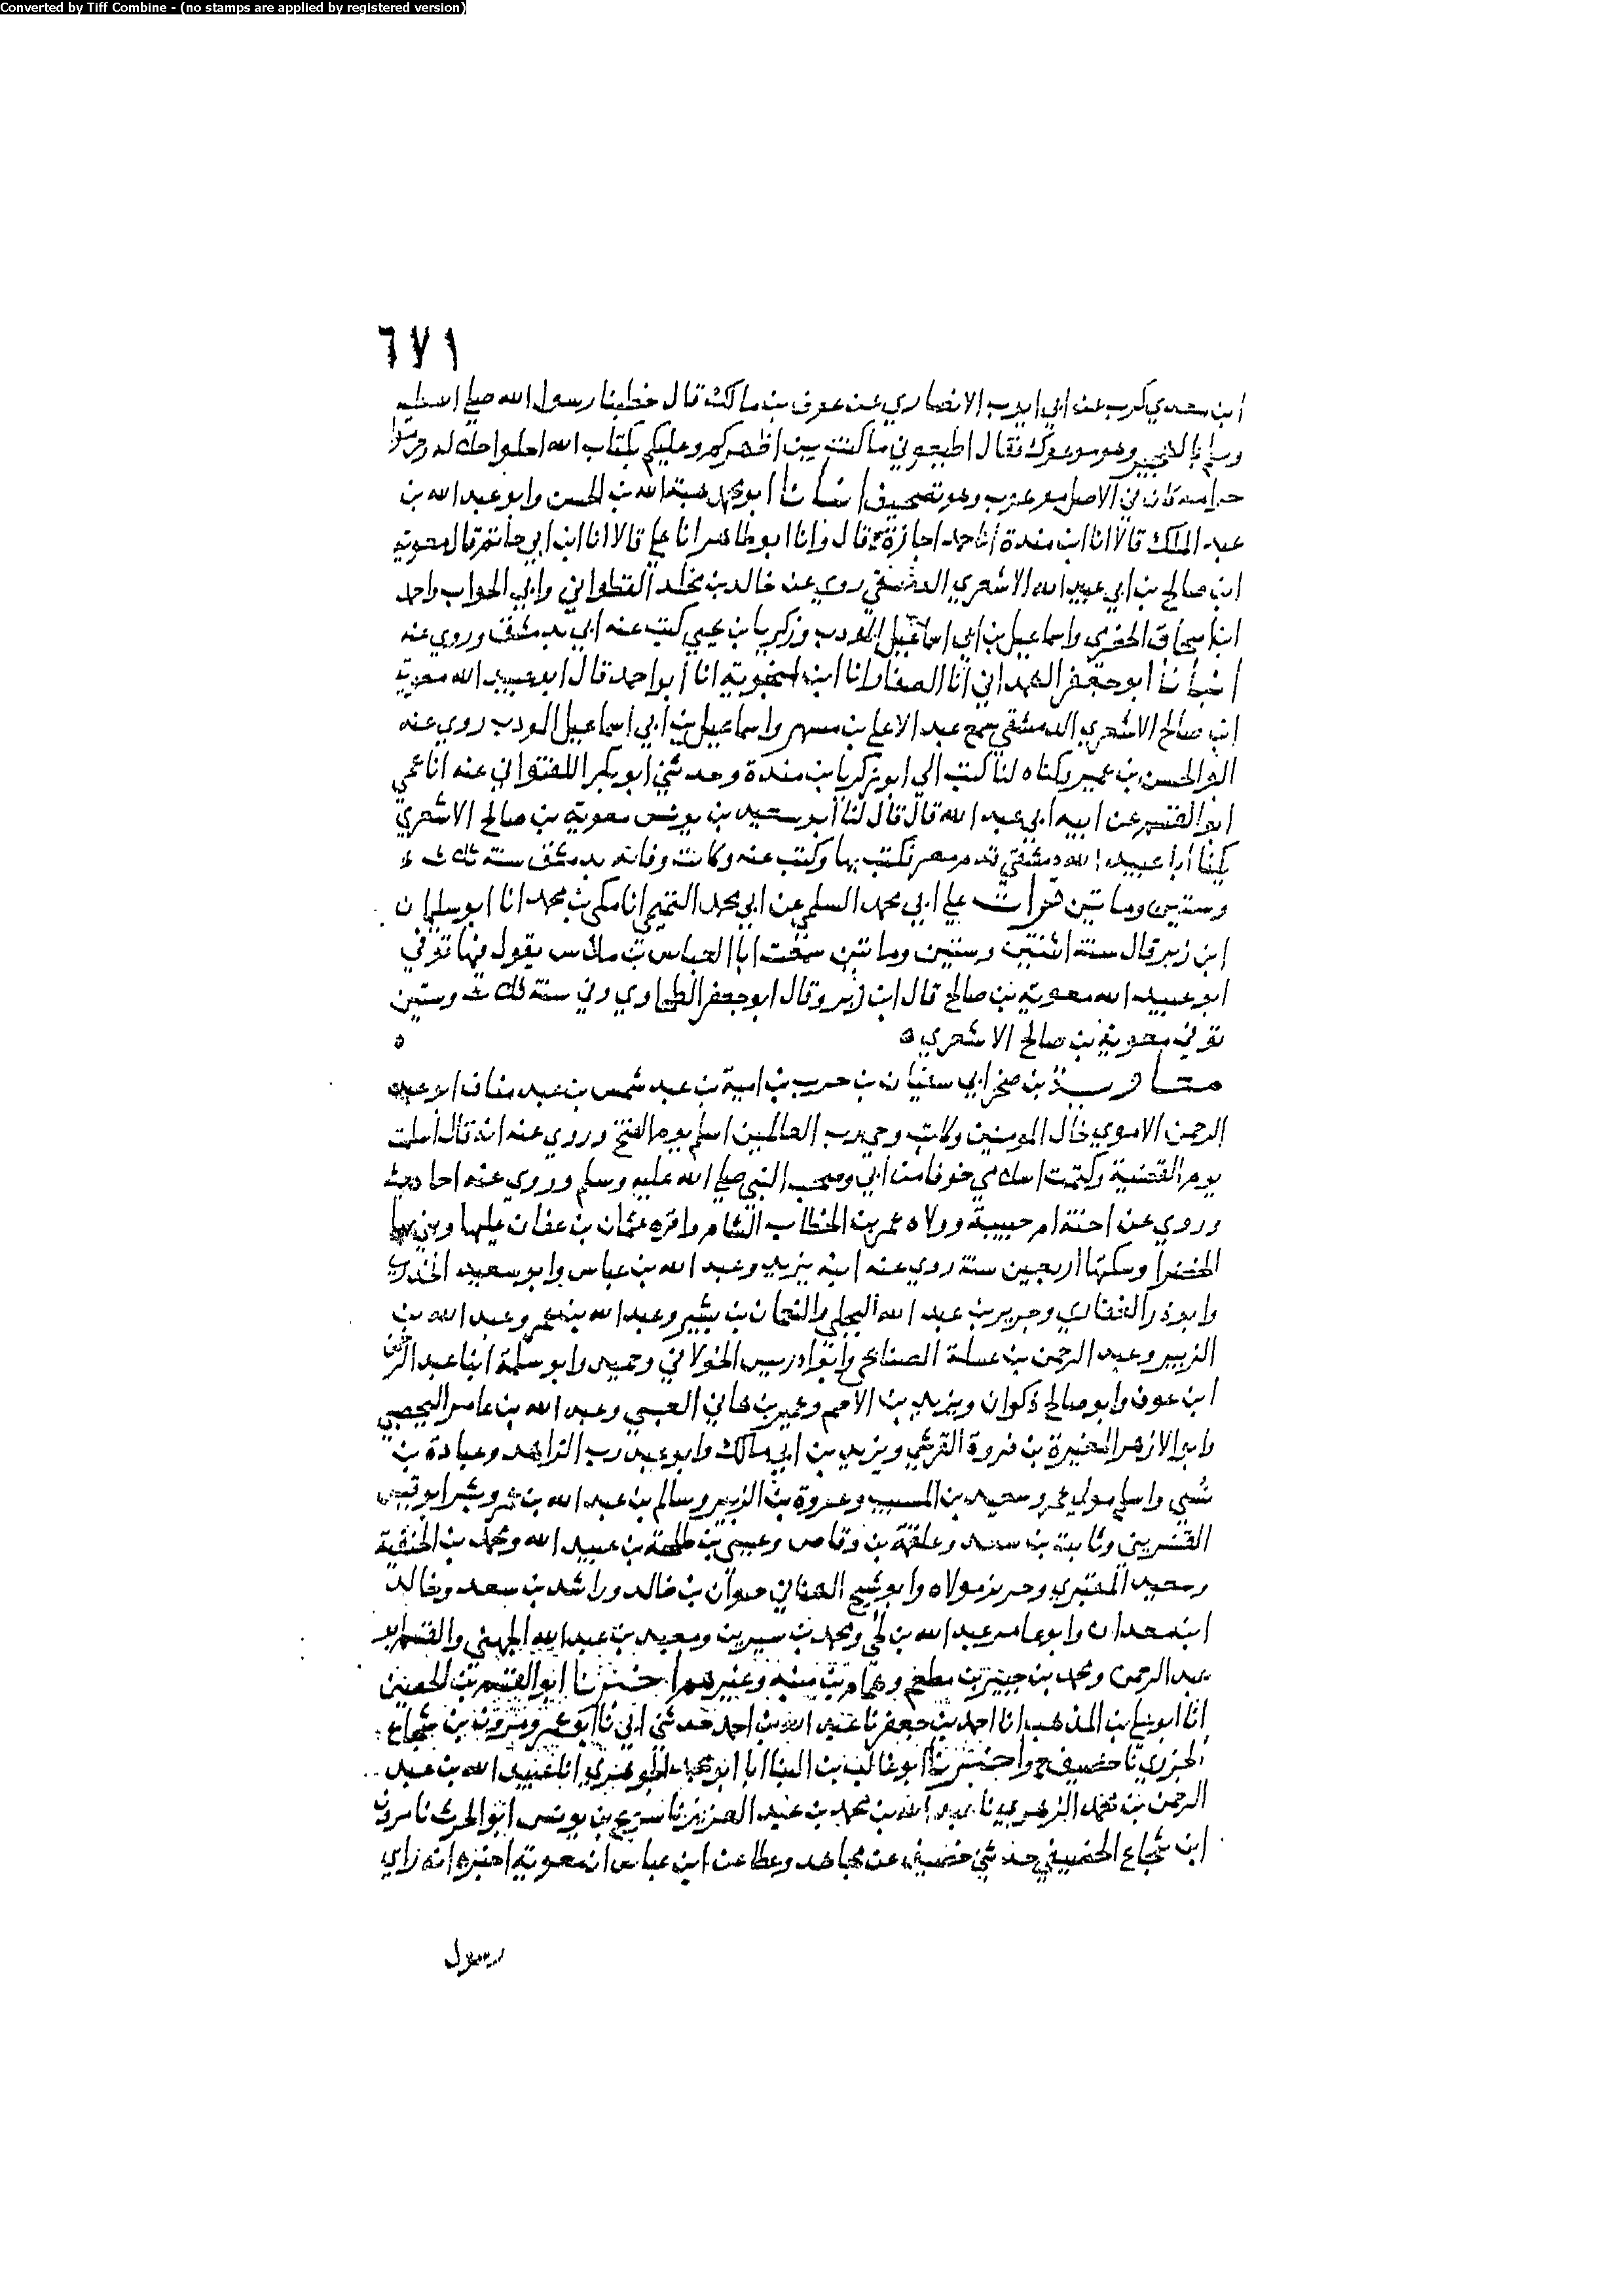 Converted by Tiff Combine - (no stamps are applied by registered version)
٦٧١
ابن معدي كرب عن ابي ايوب الانصاري عن عوف بن مالك قال خطبنا رسول الله صلي الله عليه
وسلم بالهجير وهو موعوك فقال اطيعوني ما كنت بين اظهركم وعليكم بكتاب الله احلوا حلاله وحرموا
حرامه كان في الاصل وهو تصحيف انبانا ابو محمد هبة الله بن الحسن وابو عبد الله بن
عبد الملك قالا انا ابن مندة انا حمد اجازة ح قال وانا ابو طاهر انا علي قالا انا ابن ابي حاتم قال معوية
ابن صالح بن ابي عبيد الله الاشعري الدمشقي روي عن خالد بن مخلد القطواني وابي الجواب واحمد
ابن اسحاق الحضرمي واسماعيل بن ابي اسماعيل المودب وزكريا بن يحيي كتب عنه ابي بدمشق وروي عنه
انبانا ابو جعفر الهمداني انا الصفار انا ابن منجوية انا ابو احمد قال ابو عبيد الله معوية
ابن صالح الاشعري الدمشقي سمع عبد الاعلي بن مسهر واسماعيل بن ابي اسماعيل المودب روي عنه
ابو الحسن بن عمير وكناه لنا كتب الي ابو زكريا بن مندة وحدثني ابو بكر اللفتواني عنه انا عمي
ابو القسم عن ابيه ابي عبد الله قال قال لنا ابو سعيد بن يونس معوية بن صالح الاشعري
يكنا ابا عبيد الله دمشقي قدم مصر فكتب بها وكتب عنه وكانت وفاته بدمشق سنة ثلاث
وستين وماتين قرات علي ابي محمد السلمي عن ابي محمد التميمي انا مكي بن محمد انا ابو سليمان
ابن زبر قال سنة اثنتين وستين وماتين سمعت ابا العباس بن ملاس يقول فيها توفي
ابو عبيد الله معوية بن صالح قال ابن زبر وقال ابو جعفر الطحاوي وفي سنة ثلاث وستين
توفي معوية بن صالح الاشعري ه ه
معاوية بن صخر ابي سفيان بن حرب بن امية بن عبد شمس بن عبد مناف ابو عبد
الرحمن الاموي خال المومنين وكاتب وحي رب العالمين اسلم يوم الفتح وروي عنه انه قال اسلمت
يوم القضية وكتمت اسلامي خوفا من ابي وصحب النبي صلي الله عليه وسلم وروي عنه احاديث
وروي عن اخته ام حبيبة وولاه عمر بن الخطاب الشام واقره عثمان بن عفان عليها وبني بها
الخضرا وسكنها اربعين سنة روي عنه ابنه يزيد وعبد الله بن عباس وابو سعيد الخدري
وابو ذر الغفاري وجرير بن عبد الله البجلي والنعمان بن بشير وعبد الله بن عمر وعبد الله بن
الزبير وعبد الرحمن بن عسلة الصنابحي وابو ادريس الخولاني وحميد وابو سلمة ابنا عبد الرحمن
ابن عوف وابو صالح ذكوان ويزيد بن الاصم وعمير بن هاني العبسي وعبد الله بن عامر اليحصبي
وابو الازهر المغيرة بن فروة القرشي ويزيد بن ابي مالك وابو عبد رب الزاهد وعبادة بن
نسي واسلم مولي عمر وسعيد بن المسيب وعروة بن الزبير وسالم بن عبد الله بن عمر وبشر ابو قيس
القنسريني وثابت بن سعد وعلقمة بن وقاص وعيسي بن طلحة بن عبيد الله ومحمد بن الحنفية
وسعيد المقبري وحريز مولاه وابو شيخ الهناني حيوان بن خالد وراشد بن سعد وخالد
ابن معدان وابو عامر عبد الله بن لحي ومحمد بن سيرين ومعبد بن عبد الله الجهني والقسم ابو
عبد الرحمن ومحمد بن جبير بن مطعم وهمام بن منبه وغيرهم اخبرنا ابو القسم بن الحصين
انا ابو علي بن المذهب انا احمد بن جعفر نا عبد الله بن احمد حدثني ابي نا ابو عمرو مروان بن شجاع
الجزري نا خصيف ح واخبرنا ابو غالب بن البنا انا ابو محمد الجوهري انا عبيد الله بن عبد
الرحمن بن محمد الزهري نا عبد الله بن محمد بن عبد العزيز نا سريج بن يونس ابو الحرث نا مروان
ابن شجاع الخصيفي حدثني خصيف عن مجاهد وعطا عن ابن عباس ان معوية اخبره انه راي
رسول